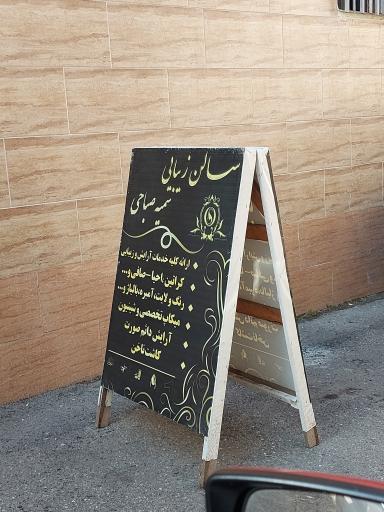 سالن زیبایی
سمیه صباحی
ارائه کلیه خدمات آرایش و زیبایی
کراتین، احیا-صافی و...
رنگ و لایت، آمبره، بالیاژ و...
میکاپ تخصصی و شینیون
آرایش دائم صورت
کاشت ناخن